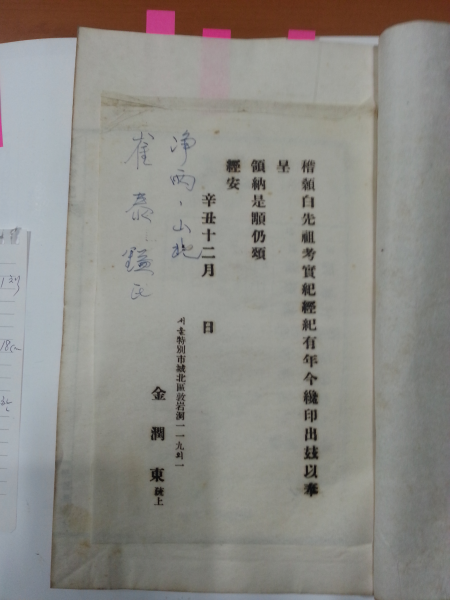 稽顙白先祖考實紀經紀有年今纔印出玆以奉
呈
領納是願仍頌
經安
辛丑十二月 日
서울特別市城北區敦岩洞一一九의一
金潤東 疏上
山北
崔泰鎰氏